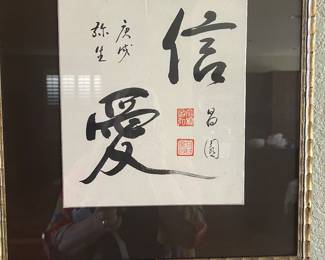 信愛
庚戌
弥生
昌園